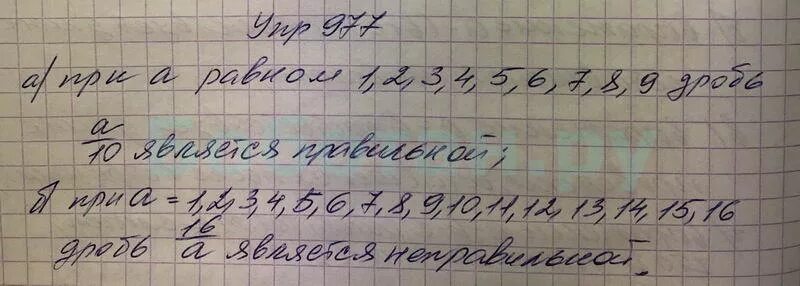 Упр 977
а) при а равном 1, 2, 3, 4, 5, 6, 7, 8, 9 дробь
а/10 является правильной;
б) при а = 1, 2, 3, 4, 5, 6, 7, 8, 9, 10, 11, 12, 13, 14, 15, 16
дробь 16/а является неправильной.